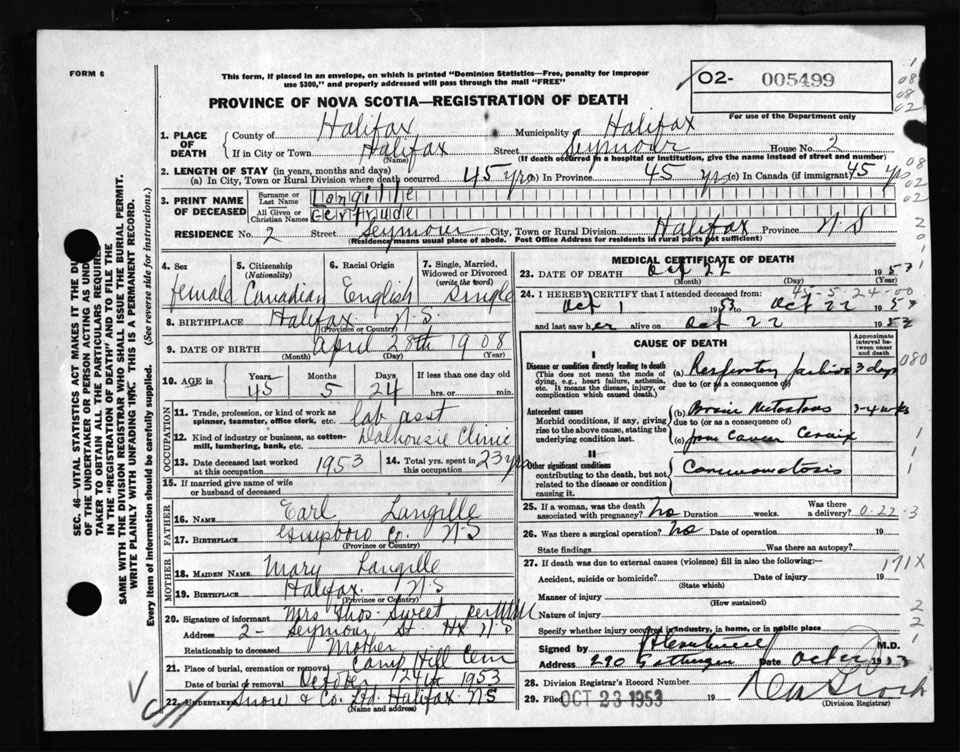 FORM 6
This form, if placed in an envelope, on which is printed "Dominion Statistics—Free, penalty for improper
use $300," and properly addressed will pass through the mail "FREE"
PROVINCE OF NOVA SCOTIA—REGISTRATION OF DEATH
O2- 005499
For use of the Department only
1. PLACE OF DEATH
County of Halifax Municipality of Halifax
If in City or Town Halifax Street Seymour House No. 2
(Name) (If death occurred in a hospital or institution, give the name instead of street and number)
2. LENGTH OF STAY (in years, months and days)
(a) In City, Town or Rural Division where death occurred 45 yrs (b) In Province 45 yrs (c) In Canada (if immigrant) 45 yrs
3. PRINT NAME OF DECEASED
Surname or Last Name Langille
All Given or Christian Names Gertrude
RESIDENCE No. 2 Street Seymour City, Town or Rural Division Halifax Province N.S
(Residence means usual place of abode. Post Office Address for residents in rural parts not sufficient)
4. Sex female
5. Citizenship (Nationality) Canadian
6. Racial Origin English
7. Single, Married, Widowed or Divorced (write the word) Single
8. BIRTHPLACE Halifax N.S.
(Province or Country)
9. DATE OF BIRTH April 28th 1908
(Month) (Day) (Year)
10. AGE in Years 45 Months 5 Days 24 If less than one day old
hrs. or min.
OCCUPATION
11. Trade, profession, or kind of work as spinner, teamster, office clerk, etc. lab asst
12. Kind of industry or business, as cotton-mill, lumbering, bank, etc. Dalhousie Clinic
13. Date deceased last worked at this occupation 1953
14. Total yrs. spent in this occupation 23 yrs
15. If married give name of wife or husband of deceased
FATHER
16. NAME Earl Langille
17. BIRTHPLACE Guysboro Co. N.S
(Province or Country)
MOTHER
18. MAIDEN NAME Mary Langille
19. BIRTHPLACE Halifax N.S.
(Province or Country)
20. Signature of informant Mrs Thos. Sweet per
Address 2- Seymour St. Hx N.S
Relationship to deceased Mother
21. Place of burial, cremation or removal Camp Hill Cem
Date of burial or removal October 24th 1953
22. UNDERTAKER Snow & Co. Ltd. Halifax N.S
(Name and address)
MEDICAL CERTIFICATE OF DEATH
23. DATE OF DEATH Oct 22 1953
(Month) (Day)
45-5-24-00
24. I HEREBY CERTIFY that I attended deceased from:
Oct 1 1953 to Oct 22 1953
and last saw her alive on Oct 22 1953
CAUSE OF DEATH
Approximate interval between onset and death
I
Disease or condition directly leading to death
(This does not mean the mode of dying, e.g., heart failure, asthenia, etc. It means the disease, injury, or complication which caused death.)
(a) Respiratory 3 days
due to (or as a consequence of)
Antecedent causes
Morbid conditions, if any, giving rise to the above cause, stating the underlying condition last.
(b) Brain Metastases 3-4 wks
due to (or as a consequence of)
(c) from Cancer Cervix
II
Other significant conditions
contributing to the death, but not related to the disease or condition causing it.
Carcinomatosis
25. If a woman, was the death associated with pregnancy? No Duration weeks. Was there a delivery? 0-22-3
26. Was there a surgical operation? No Date of operation 19
State findings Was there an autopsy?
27. If death was due to external causes (violence) fill in also the following:— 171X
Accident, suicide or homicide? Date of injury 19
(State which)
Manner of injury
(How sustained)
Nature of injury
Specify whether injury occurred in industry, in home, or in public place
Signed by M.D.
Address 290 Gottingen Date 1953
28. Division Registrar's Record Number
29. Filed OCT 23 1953 19
(Division Registrar)
SEC. 46—VITAL STATISTICS ACT MAKES IT THE
OF THE UNDERTAKER OR PERSON ACTING AS
TAKER TO OBTAIN ALL THE PARTICULARS REQUIRED
IN THE "REGISTRATION OF DEATH" AND TO FILE THE
SAME WITH THE DIVISION REGISTRAR WHO SHALL ISSUE THE BURIAL PERMIT.
WRITE PLAINLY WITH UNFADING INK. THIS IS A PERMANENT RECORD.
Every item of information should be carefully supplied. (See reverse side for instructions.)
1
08
08
02
08
02
02
2
0
1
080
1
2
2
1